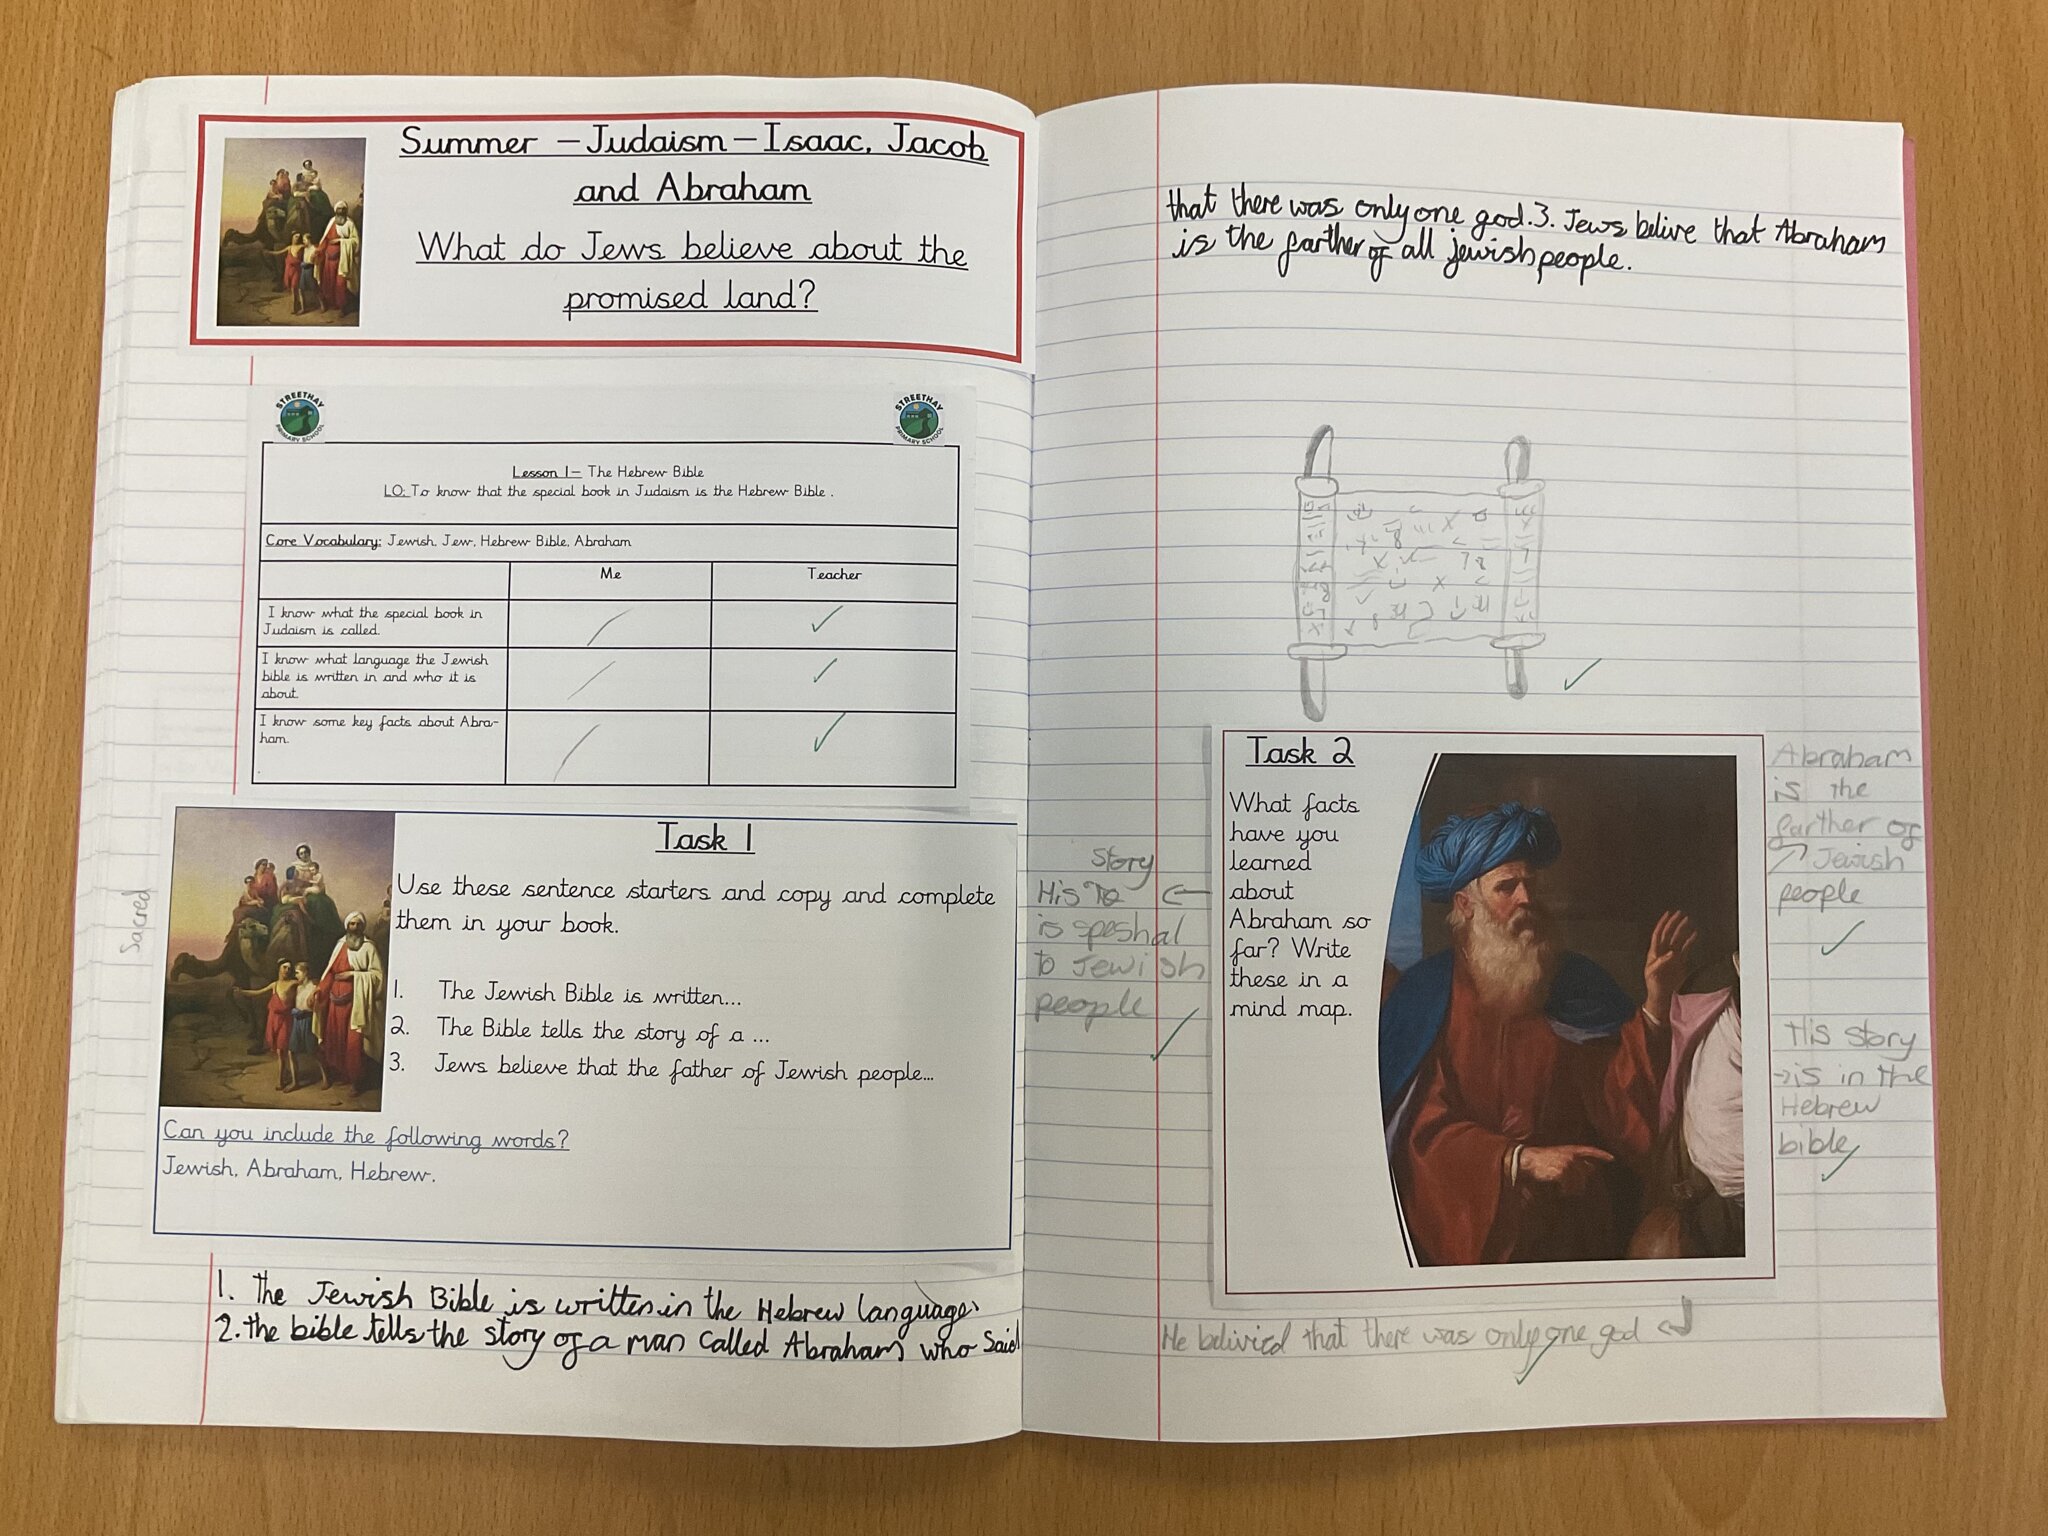 Summer – Judaism – Isaac, Jacob
and Abraham
What do Jews believe about the
promised land?
STREETHAY
PRIMARY SCHOOL
STREETHAY
PRIMARY SCHOOL
Lesson 1– The Hebrew Bible
LO: To know that the special book in Judaism is the Hebrew Bible .
Core Vocabulary: Jewish, Jew, Hebrew Bible, Abraham
Me
Teacher
I know what the special book in
Judaism is called.
I know what language the Jewish
bible is written in and who it is
about.
I know some key facts about Abra-
ham.
Sacred
Task 1
Use these sentence starters and copy and complete
them in your book.
1. The Jewish Bible is written...
2. The Bible tells the story of a ...
3. Jews believe that the father of Jewish people...
Can you include the following words?
Jewish, Abraham, Hebrew.
1. The Jewish Bible is written in the Hebrew language.
2. the bible tells the story of a man called Abraham who said
that there was only one god. 3. Jews belive that Abraham
is the farther of all jewish people.
Task 2
What facts
have you
learned
about
Abraham so
far? Write
these in a
mind map.
story
His To
is speshal
to Jewish
people
Abraham
is the
farther of
Jewish
people
His story
is in the
Hebrew
bible
He belivied that there was only one god